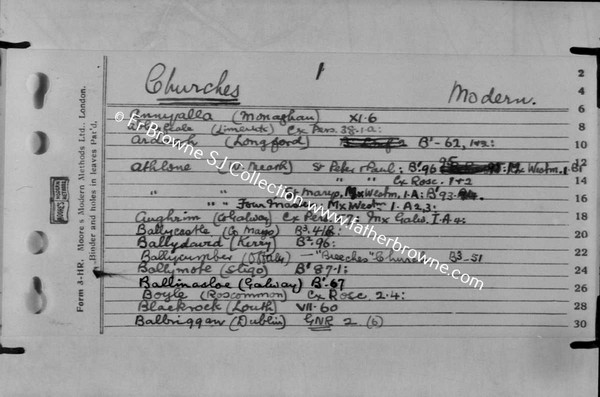 Churches 1 Modern.
Annyalla (Monaghan) XI.6
(Limerick) Cx Pers. 38.1.a:
Ardagh (Longford) B'-62, 1+2:
Athlone St Peter + Paul: B'.96 95 Mx Westm.
" " Cx Rose. 1+2
" St Marys, Mx Westm. 1.A: B'93
" " Four Mx Westm. 1.A2,3:
Aughrim (Galway) Cx Pers Mx Galw. I.A4:
Ballycastle (Co Mayo)
Ballydavid (Kerry) 96:
Ballycumber (Offaly) — "Beeches" Church B3-51
Ballymote (Sligo) B'87.1:
Ballinasloe (Galway) B'.67
Boyle (Roscommon) Cx Rose 2.4:
Blackrock (Louth) VII.60
Balbriggan (Dublin) GNR 2 (6)
2
4
6
8
10
12
14
16
18
20
22
24
26
28
30
Form 3-HR. Moore's Modern Methods Ltd., London.
Binder and holes in leaves Pat'd.
© Fr Browne SJ Collection www.fatherbrowne.com